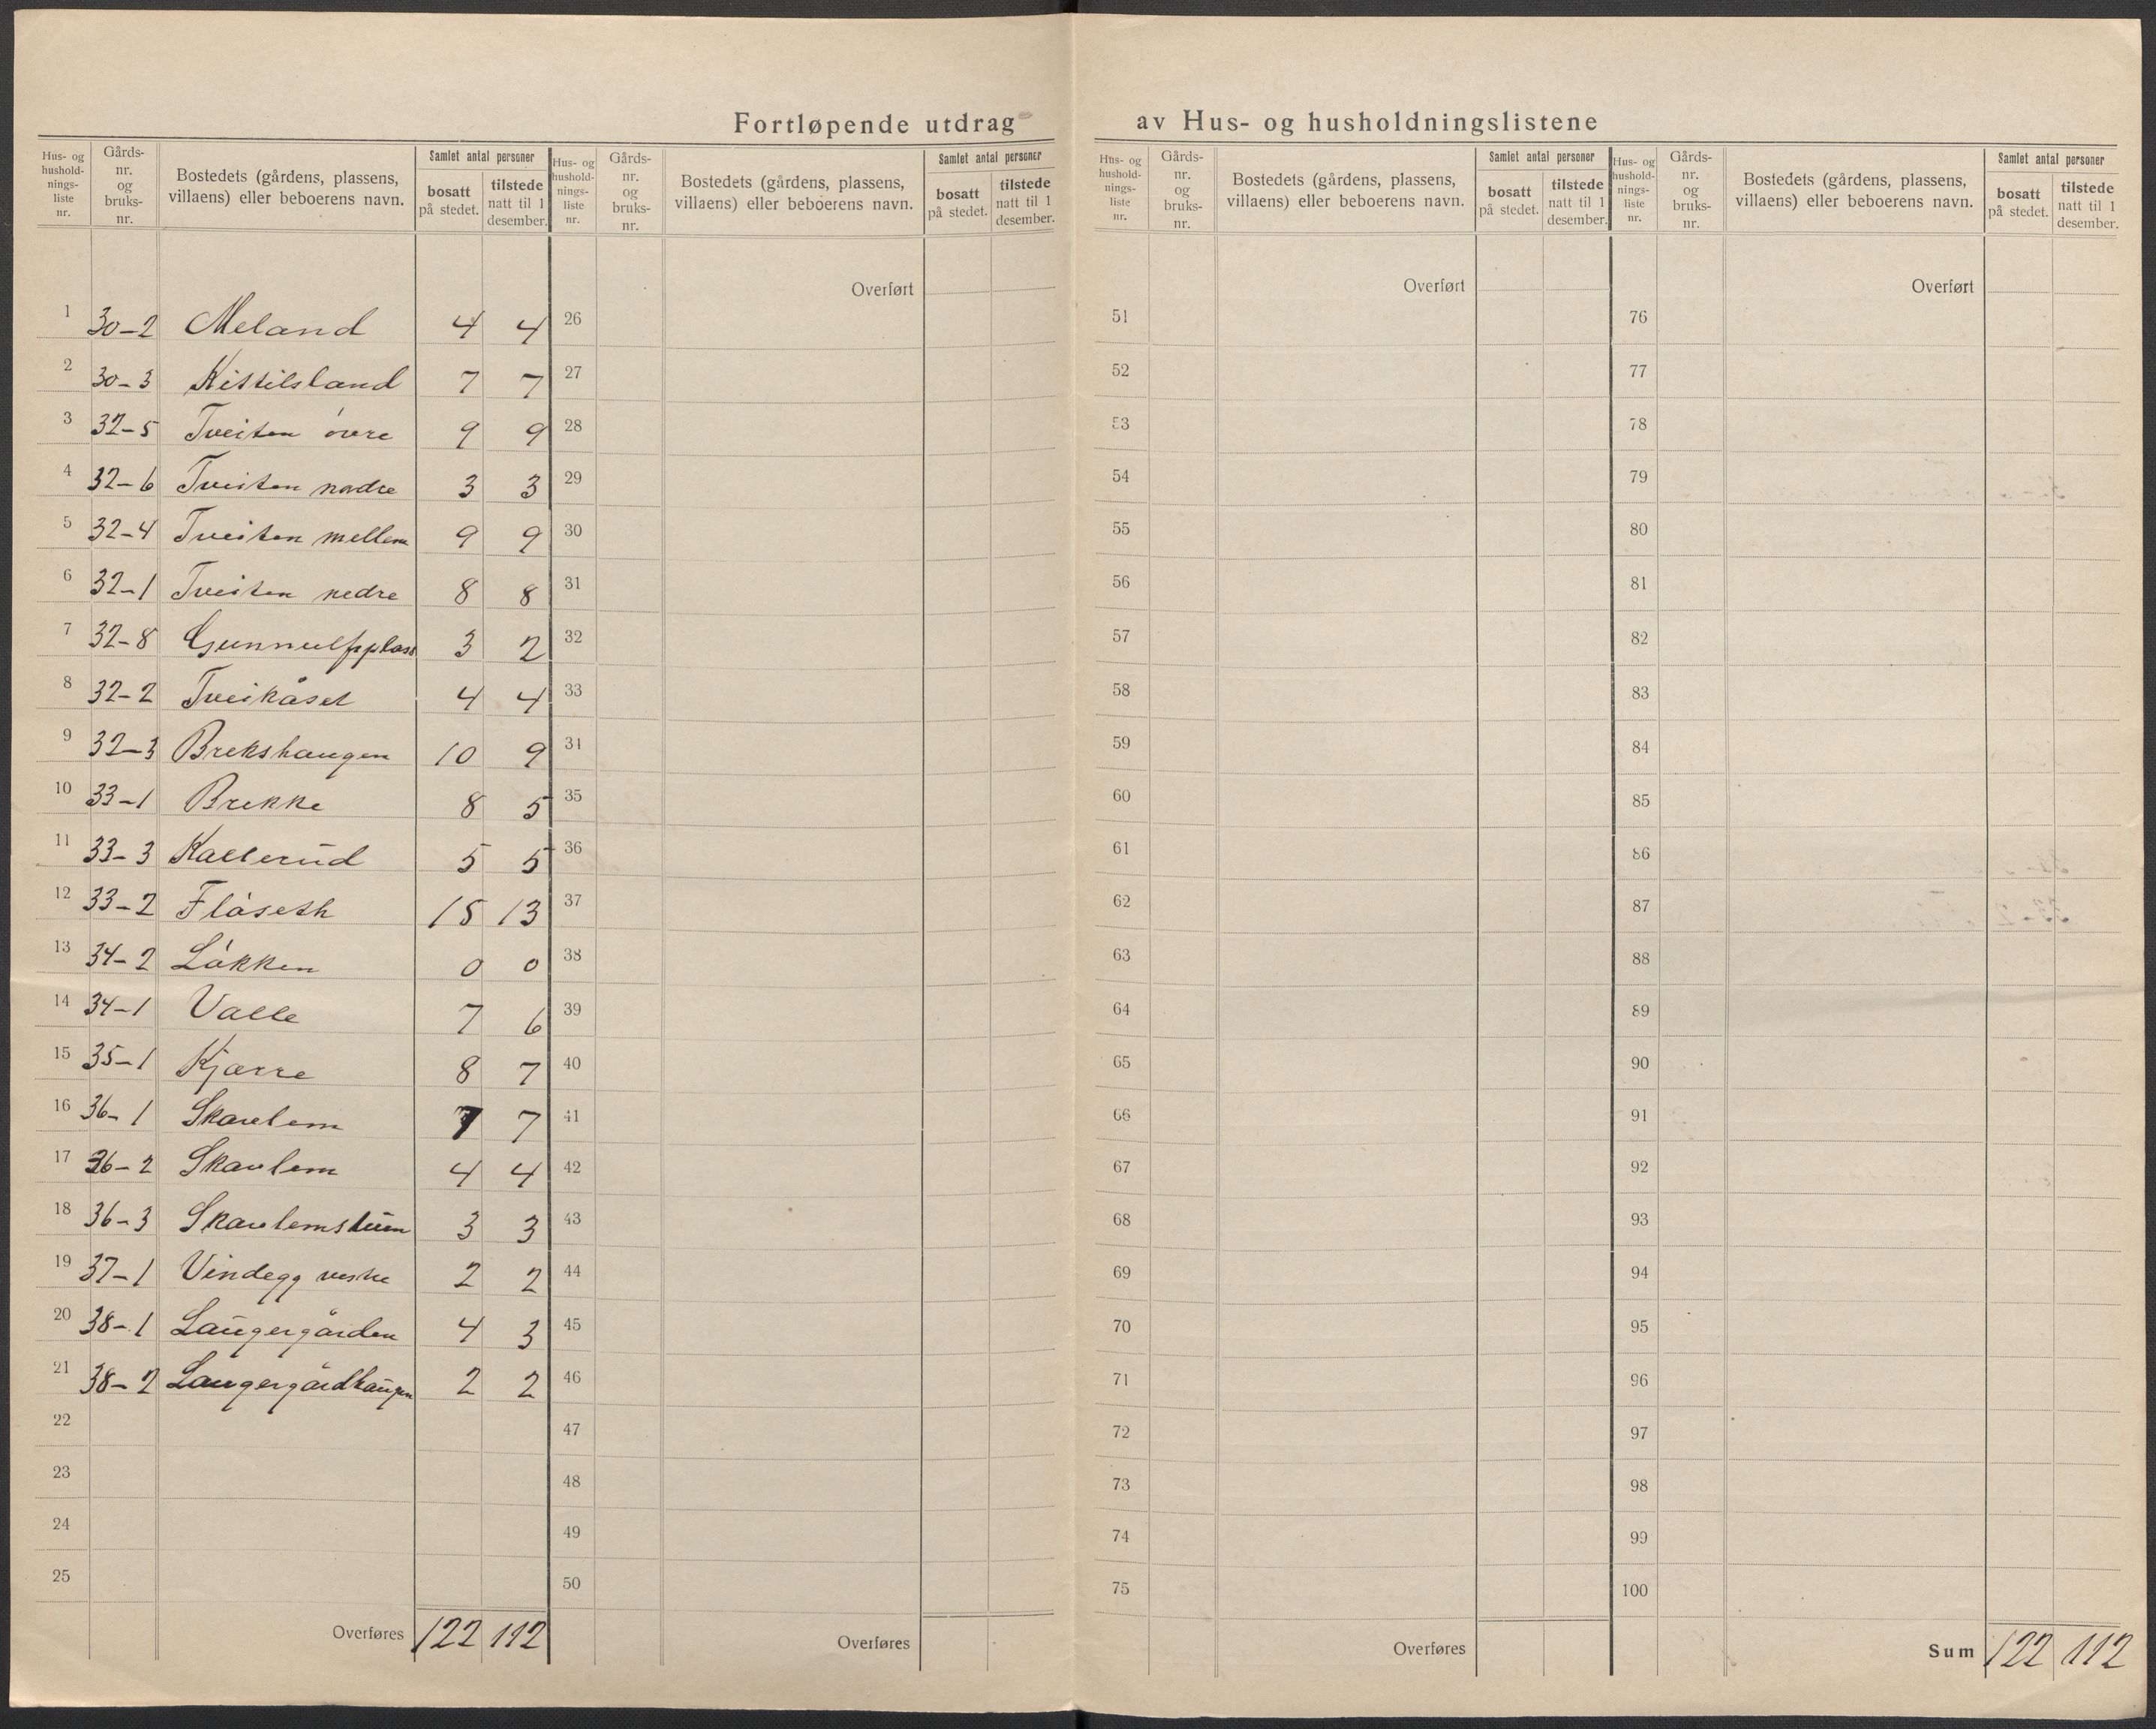 Fortløpende utdrag av Hus- og husholdningslistene
Hus- og hushold-nings-liste nr. Gårds-nr. og bruks-nr. Bostedets (gårdens, plassens, villaens) eller beboerens navn. Samlet antal personer bosatt på stedet. tilstede natt til 1 desember.
Hus- og hushold-nings-liste nr. Gårds-nr. og bruks-nr. Bostedets (gårdens, plassens, villaens) eller beboerens navn. Samlet antal personer bosatt på stedet. tilstede natt til 1 desember.
Hus- og hushold-nings-liste nr. Gårds-nr. og bruks-nr. Bostedets (gårdens, plassens, villaens) eller beboerens navn. Samlet antal personer bosatt på stedet. tilstede natt til 1 desember.
Hus- og hushold-nings-liste nr. Gårds-nr. og bruks-nr. Bostedets (gårdens, plassens, villaens) eller beboerens navn. Samlet antal personer bosatt på stedet. tilstede natt til 1 desember.
1 30-2 Meland 4 4
2 30-3 Kittilsland 7 7
3 32-5 Tveiten övre 9 9
4 32-6 Tveiten 3 3
5 32-4 Tveiten mellem 9 9
6 32-1 Tveiten nedre 8 8
7 32-8 Gunnulfsplass 3 2
8 32-2 Tveitåset 4 4
9 32-3 Brekshaugen 10 9
10 33-1 Brekke 8 5
11 33-3 Kallerud 5 5
12 33-2 Flåseth 15 13
13 34-2 Lókken 0 0
14 34-1 Valle 7 6
15 35-1 Kjærre 8 7
16 36-1 Skaulem 7 7
17 36-2 Skaulem 4 4
18 36-3 Skaulemstuen 3 3
19 37-1 Vindegg vestre 2 2
20 38-1 Laugergården 4 3
21 38-2 Laugergårdhaugen 2 2
22
23
24
25
Overføres 122 112
Overført
26
27
28
29
30
31
32
33
34
35
36
37
38
39
40
41
42
43
44
45
46
47
48
49
50
Overføres
Overført
51
52
53
54
55
56
57
58
59
60
61
62
63
64
65
66
67
68
69
70
71
72
73
74
75
Overføres
Overført
76
77
78
79
80
81
82
83
84
85
86
87
88
89
90
91
92
93
94
95
96
97
98
99
100
Sum 122 112